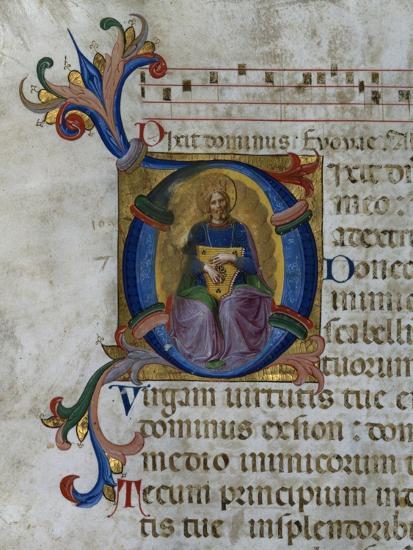 Dixit dominus: Evovae.
ixit
meo:
a dextri
Donec
inimi
scabelli
tuorum
Virgam virtutis tue e
dominus exsion: dom
medio inimicorum
Tecum principium in
tis tue insplendorib